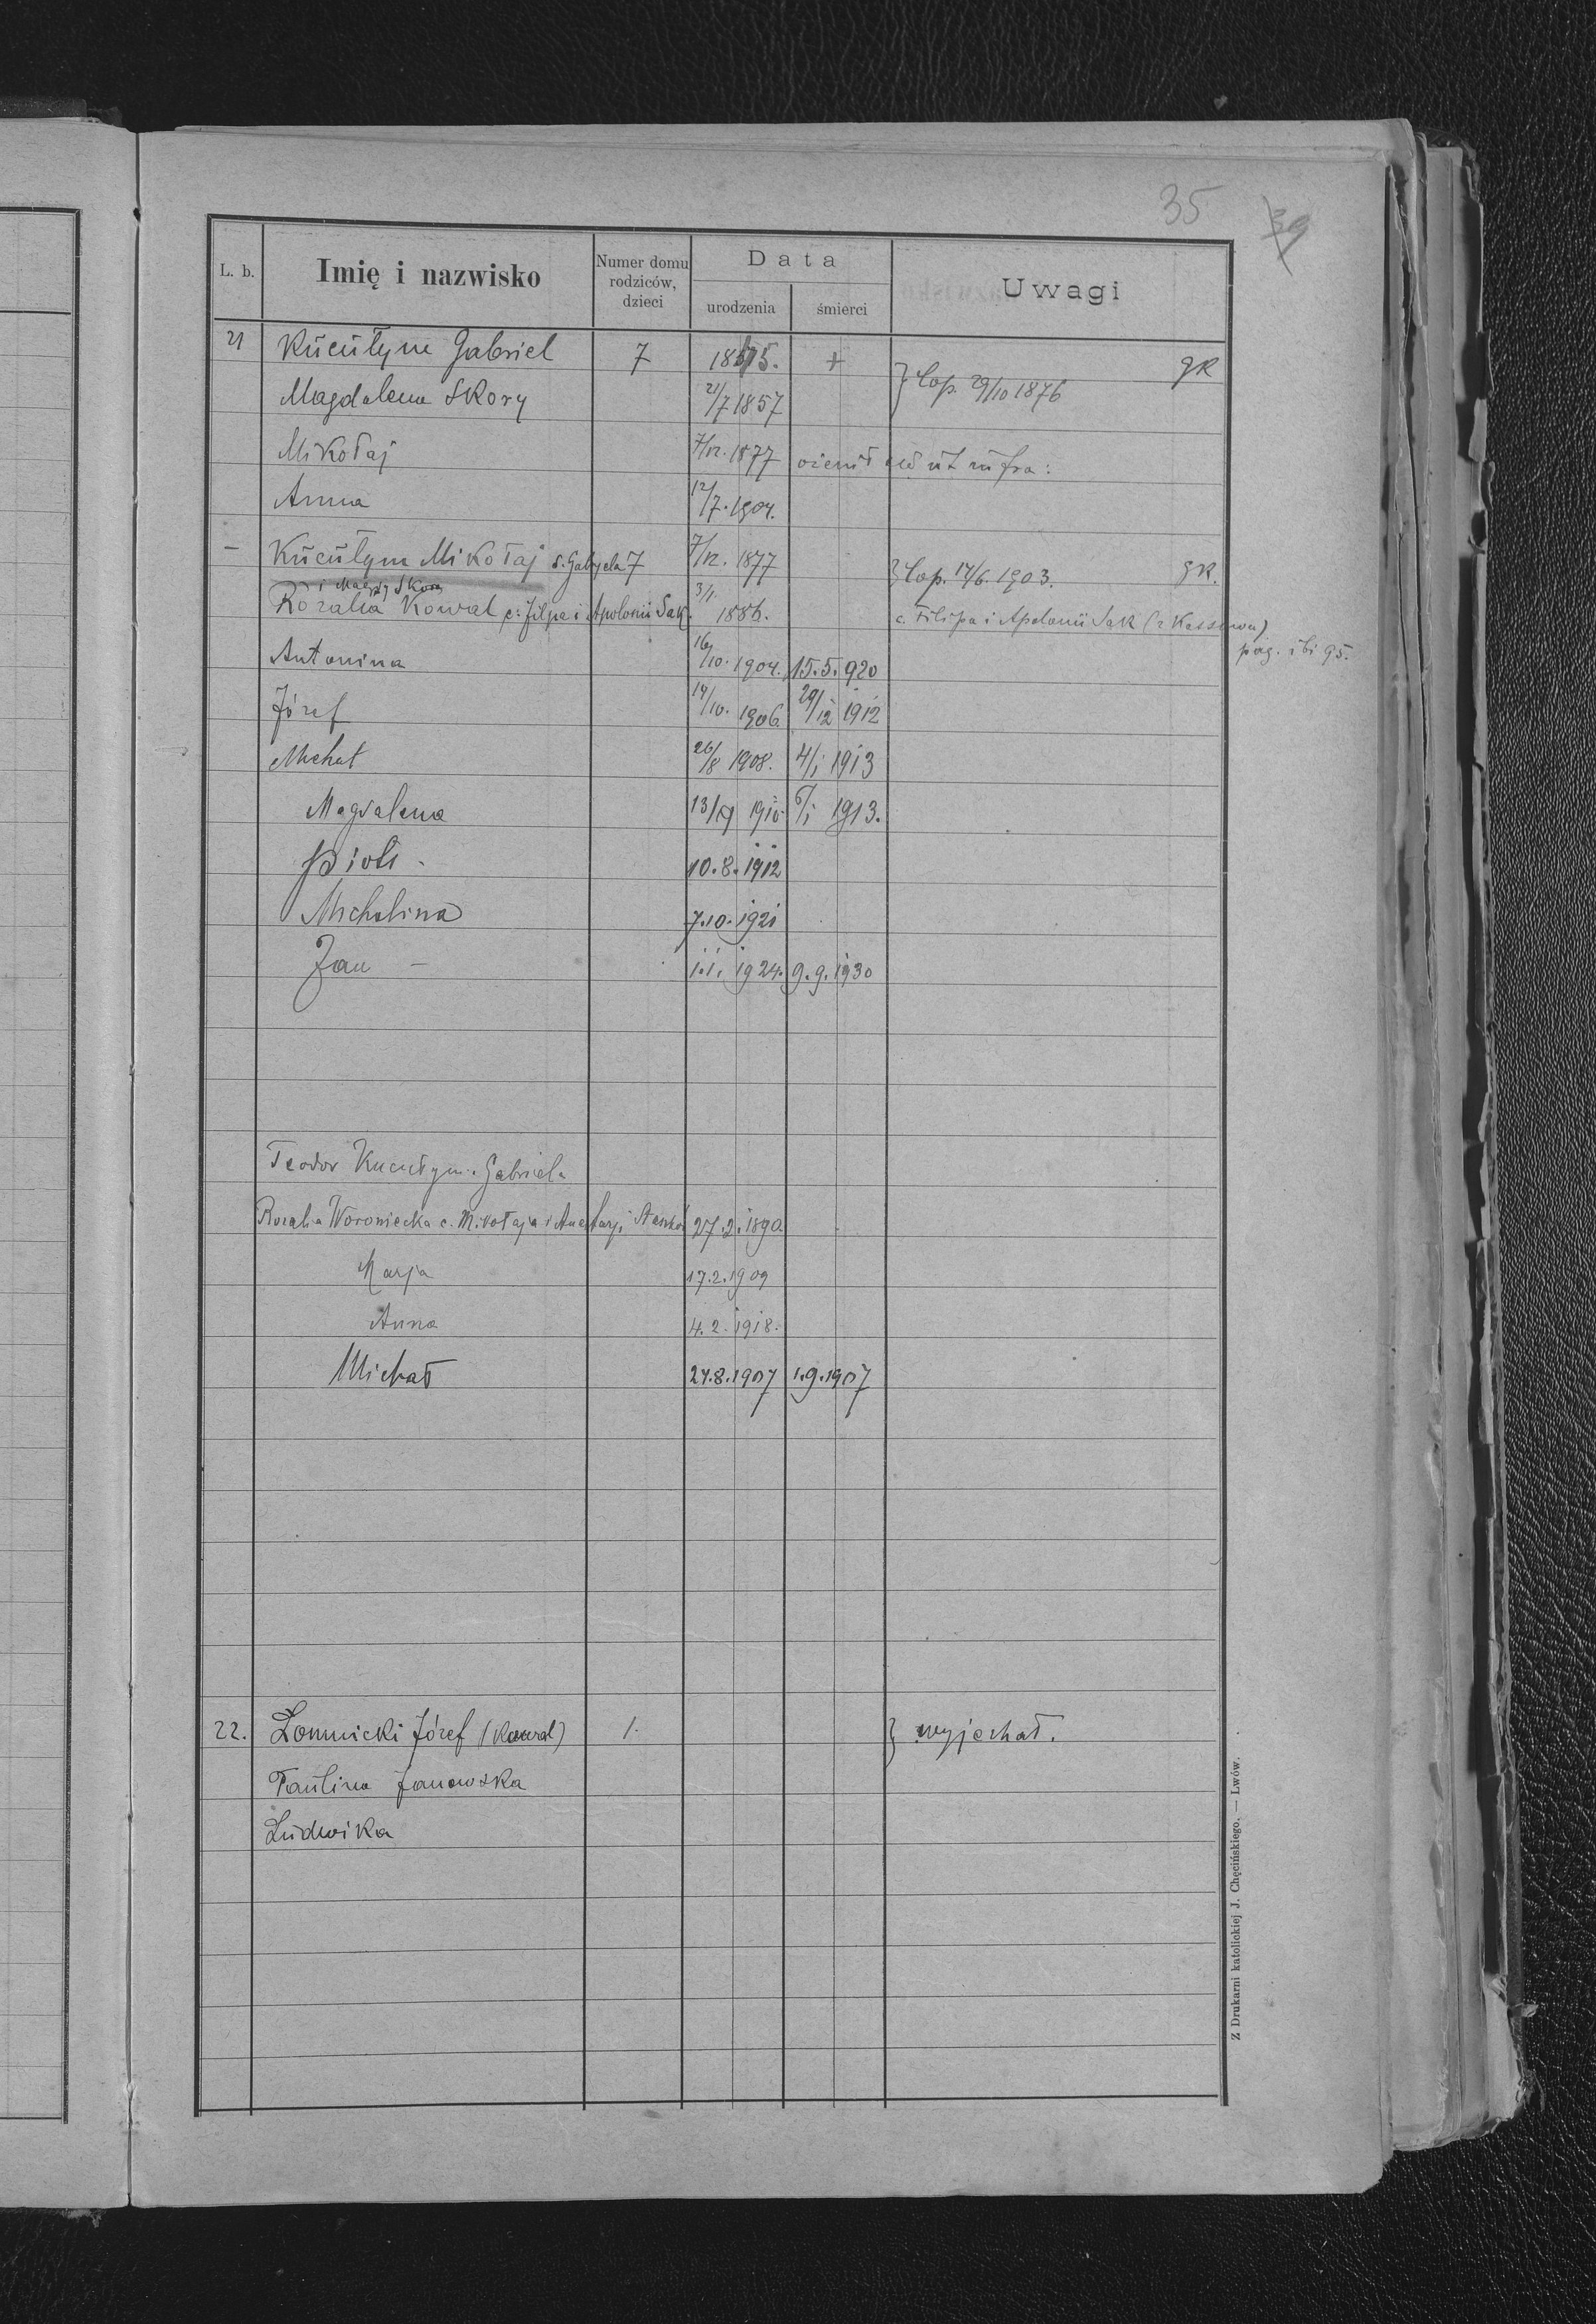 35
39
L. b. Imię i nazwisko Numer domu rodziców, dzieci Data urodzenia śmierci Uwagi
21 Kucułym Gabriel 7 1875. + } Cop. 29/10 1876 gk
Magdalena Skory 21/7 1857
Mikołaj 7/12. 1877 ożenił się ut infra:
Anna 12/7. 1904.
– Kucułym Mikołaj s. Gabryela 7 7/12. 1877 } Cop. 14/6. 1903. gk.
i Magdy Skory
Rozalia Kowal c. Filipa i Apolonii Sak. 3/1. 1886. c. Filipa i Apolonii Sak
pag. ibi 95.
Antonina 16/10. 1904. 15.5.920
Józef 14/10. 1906. 29/12 1912
Michał 26/8 1908. 4/1 1913
Magdalena 1910 6/1 1913.
Piotr - 10.8.1912
Michalina 7.10.1921
Jan – 1.1. 1924. 9.9.1930
Teodor Kucułym s. Gabriela
Rozalia Woroniecka c. Mikołaja i 27.2.1890
Marja 17.2.1909
Anna 4.2.1918.
Michał 24.8.1907 1.9.1907
22. Łomnicki Józef (Kowal) 1. } wyjechał.
Paulina Janowska
Ludwika
Z Drukarni katolickiej J. Chęcińskiego. — Lwów.